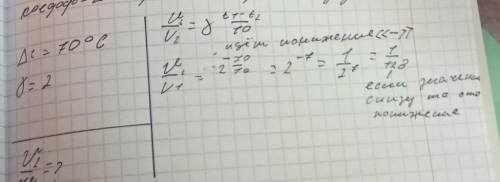 коэфф
Δt = 70°C
γ = 2
V₂/V₁ = ?
V₁/V₂ = γ^(t₁-t₂)/10
идёт понижение <<->>
= 2^(-70/10) = 2⁻⁷ = 1/2⁷ = 1/128
если значение
снизу то это
понижение